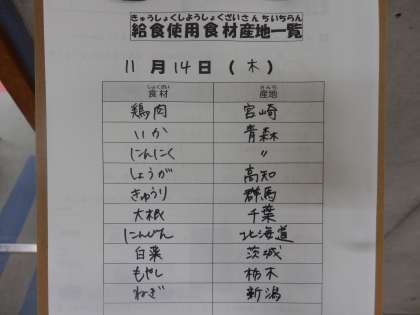 きゅうしょくしようしょくざいさんちいちらん
給食使用食材産地一覧
11月14日(木)
しょくざい さんち
食材 産地
鶏肉 宮崎
いか 青森
にんにく 〃
しょうが 高知
きゅうり 群馬
大根 千葉
にんじん 北海道
白菜 茨城
もやし 栃木
ねぎ 新潟